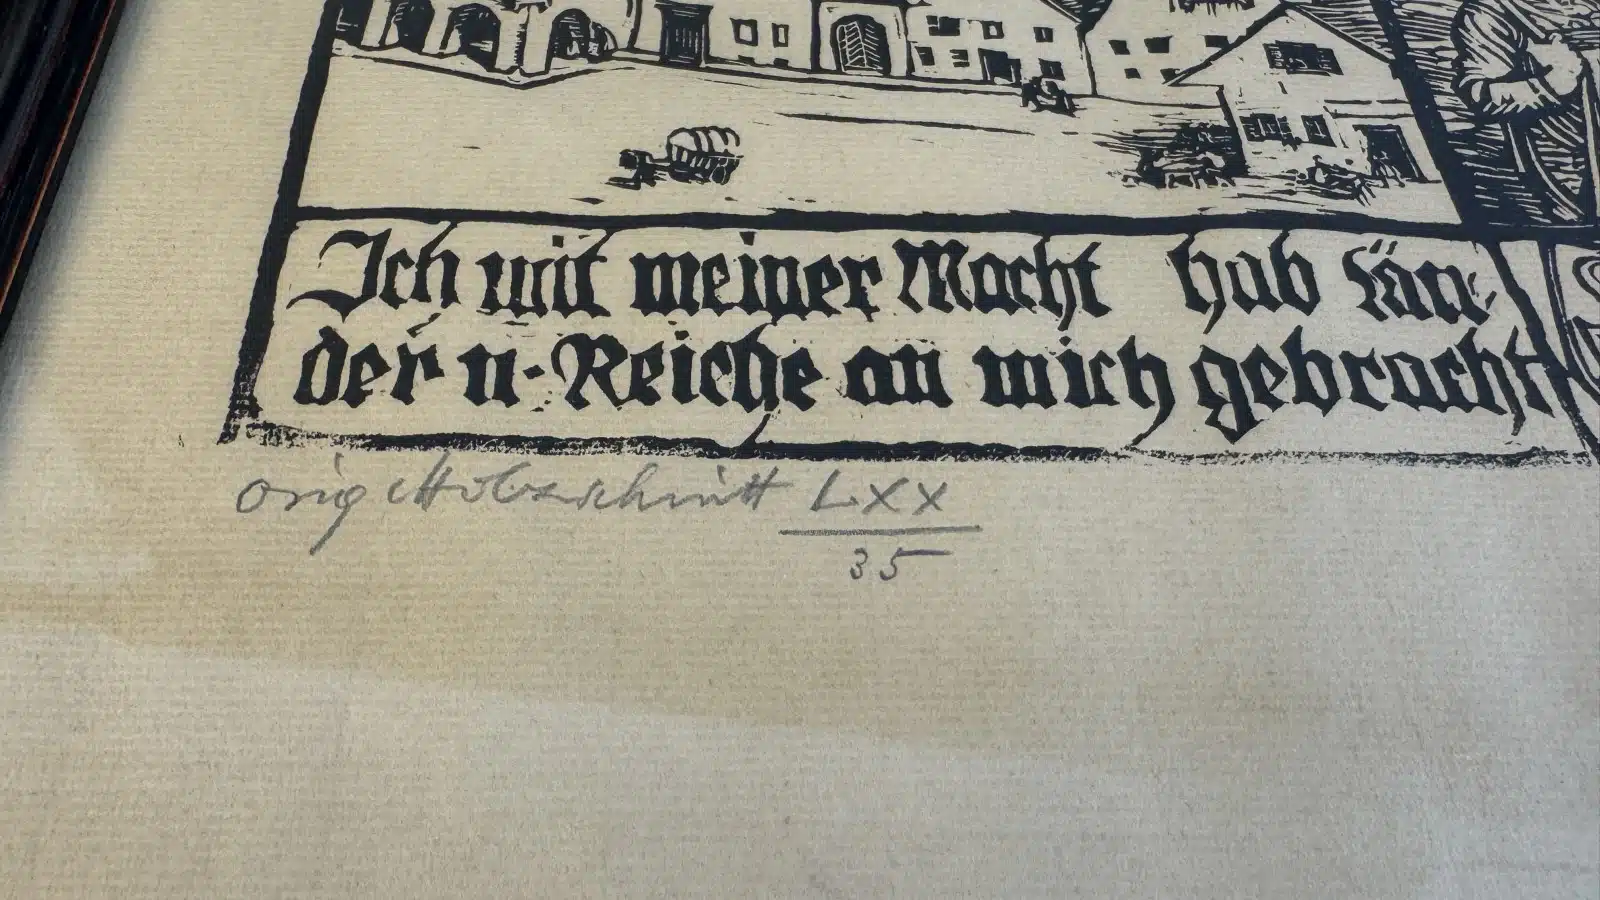 Ich mit meiner Macht hab Län-
der u. Reiche an mich gebracht
Orig Holzschnitt LXX
35